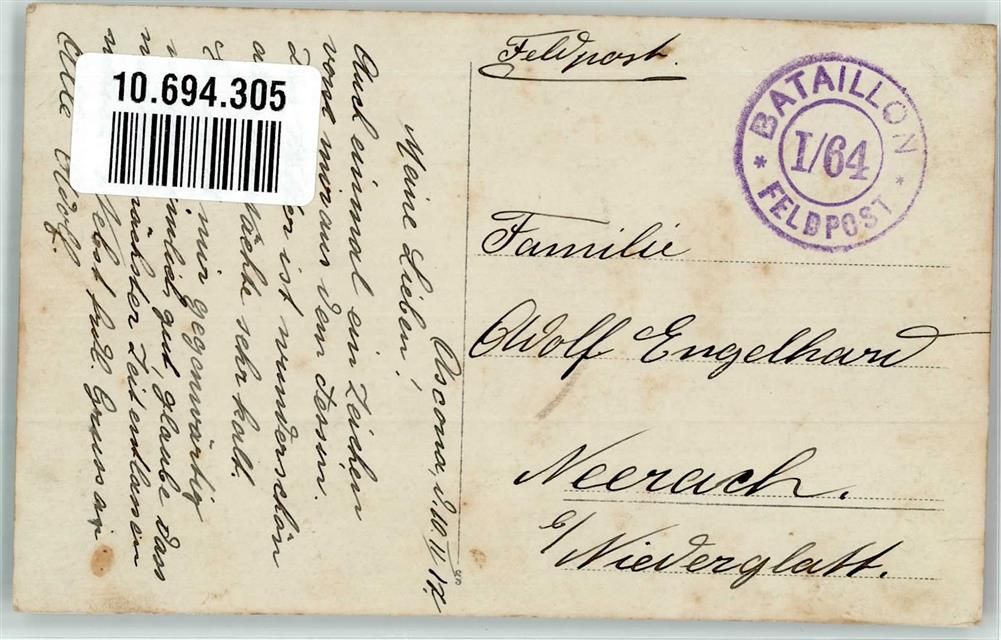 Feldpost.
BATAILLON
I/64
* FELDPOST *
Familie
Adolf Engelhard
Neerach.
b/Niederglatt.
10.694.305
Ascona, d. 10 II 17.
Meine Lieben!
Auch einmal ein Zeichen
von mir aus dem Tessin.
ist wunderschön
Nächte sehr kalt.
mir gegenwärtig
gut, glaube dass
nächster Zeit entlassen
Nebst frdl. Gruss an
Alle Adolf.